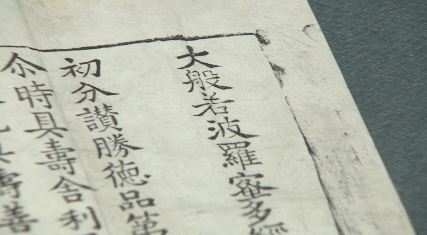 大般若波羅蜜多經
初分讚勝德品第
尒時具壽舍利
具壽善